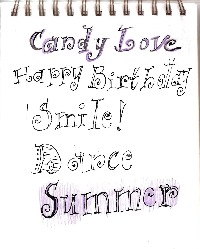 Candy Love
Happy Birthday
Smile!
Dance
Summer